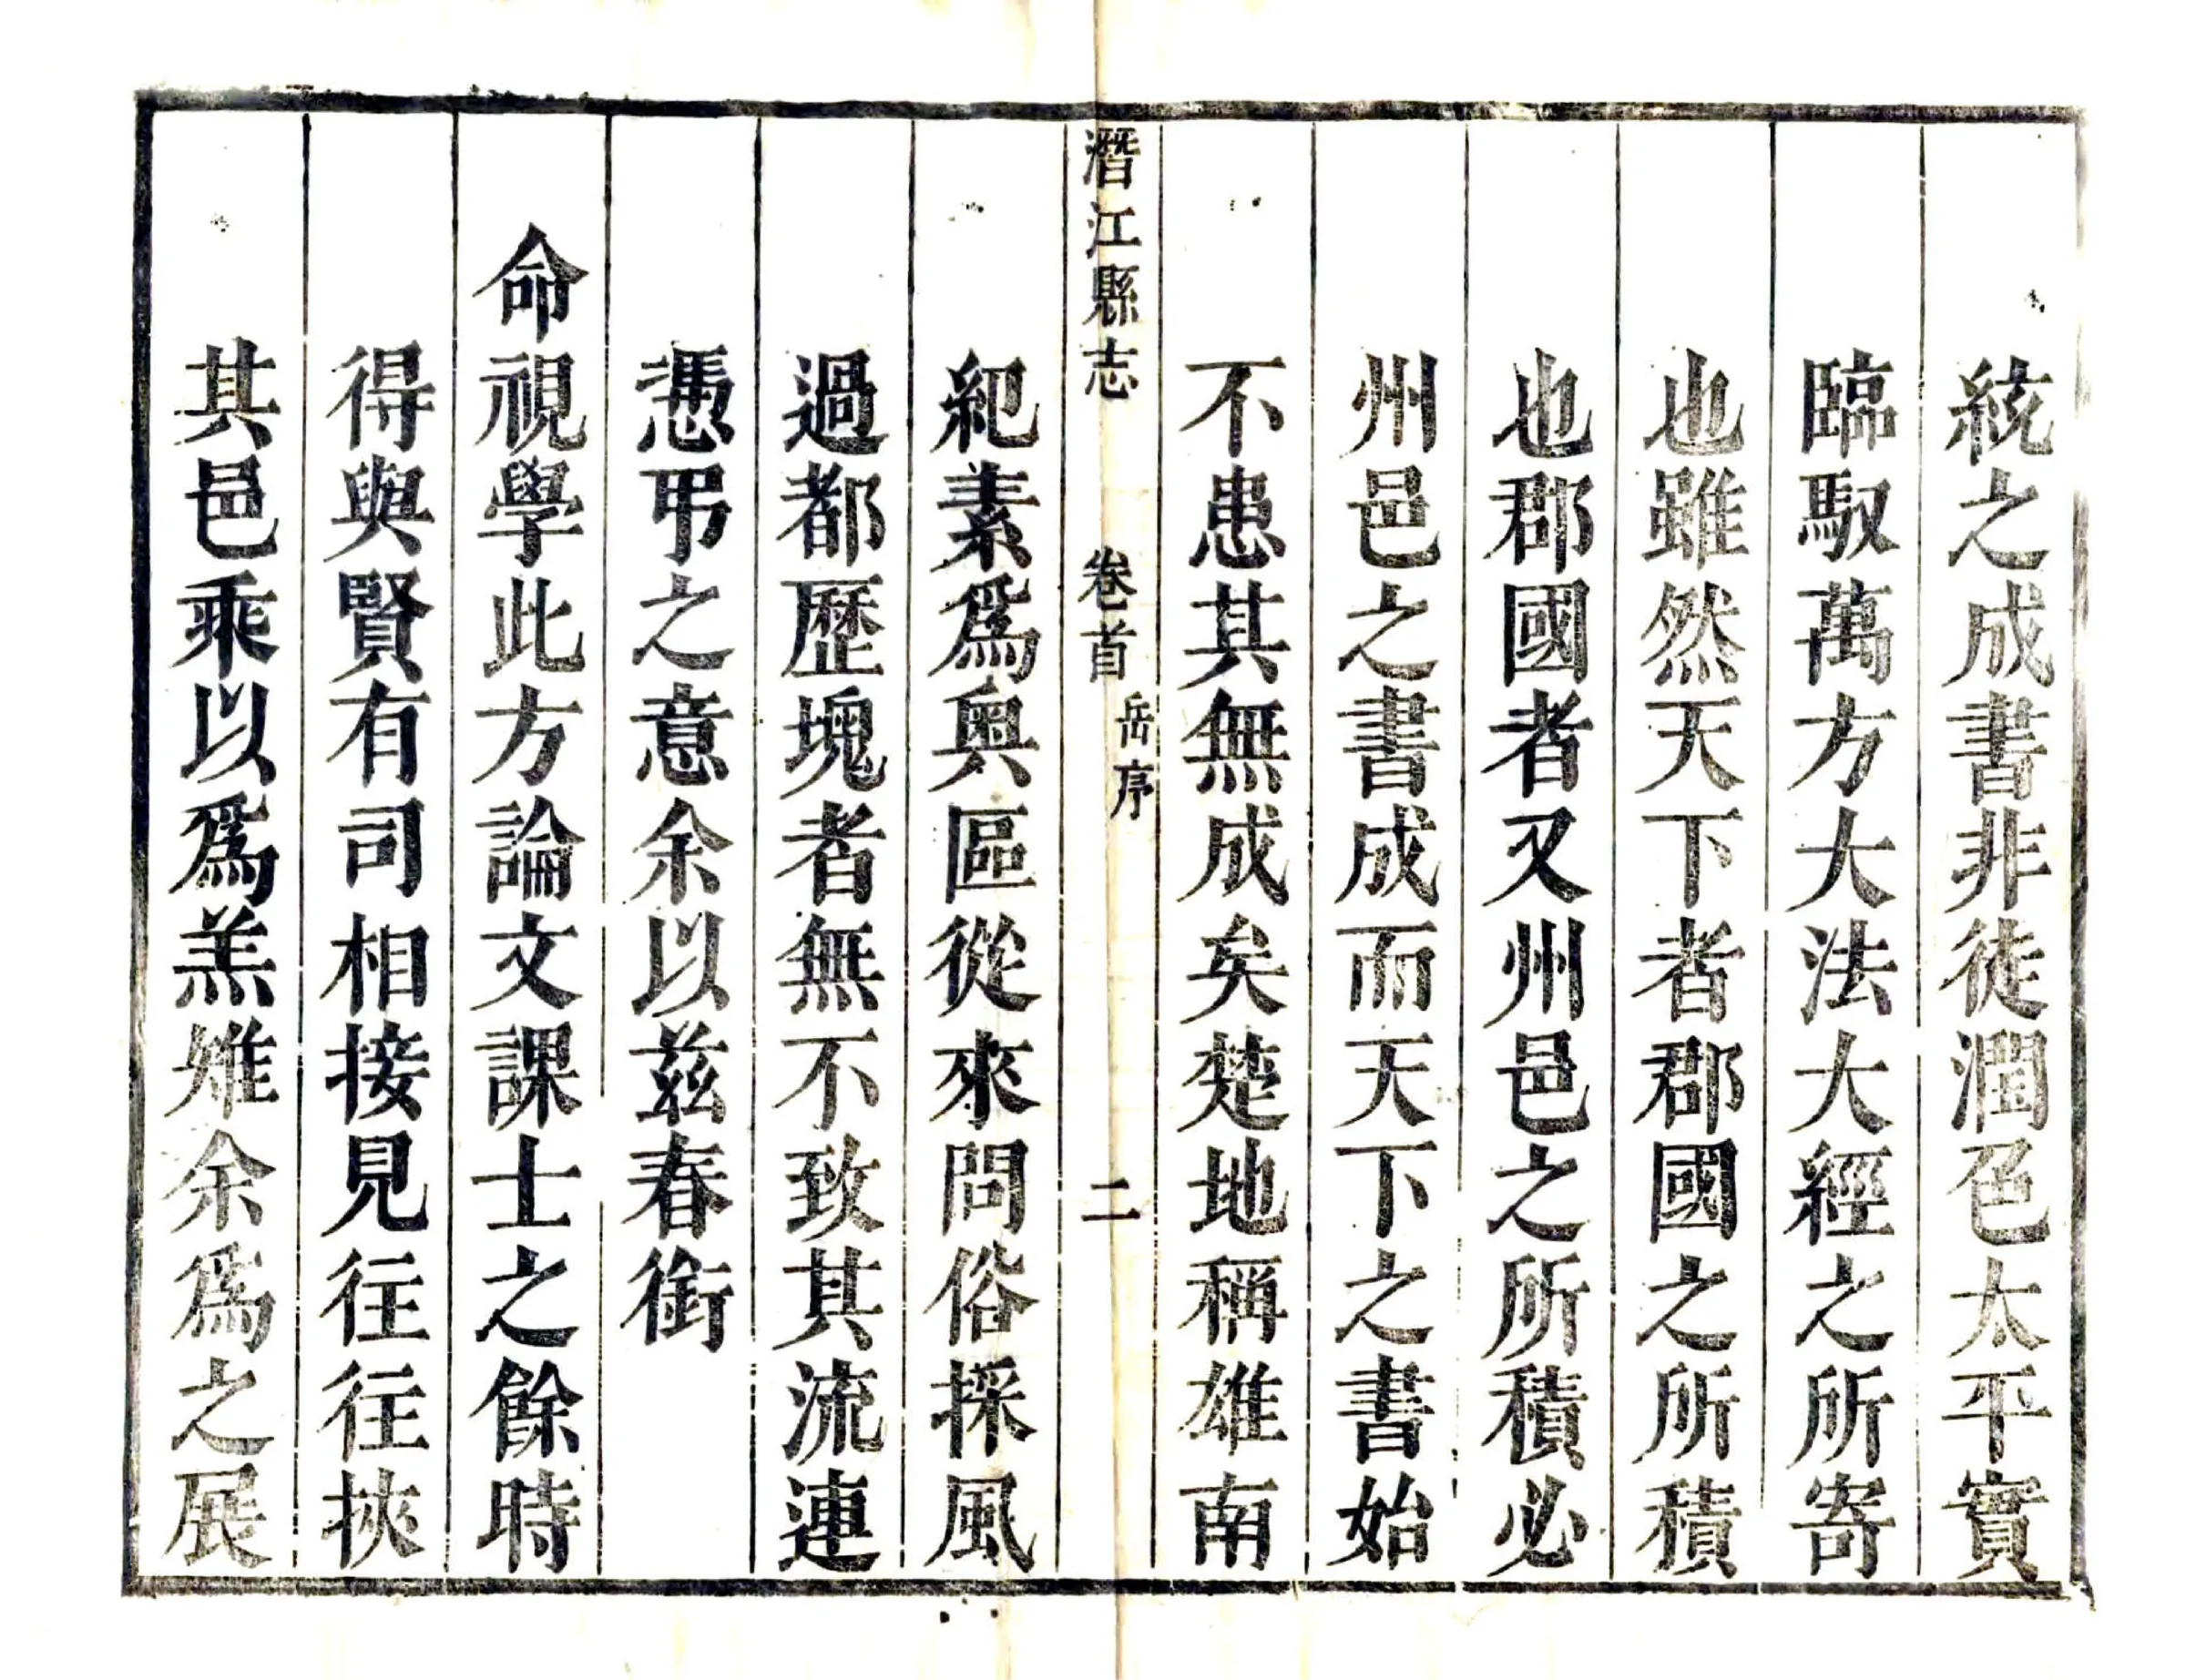 統之成書非徒潤色太平實
臨馭萬方大法大經之所寄
也雖然天下者郡國之所積
也郡國者又州邑之所積必
州邑之書成而天下之書始
不患其無成矣楚地稱雄南
潛江縣志 卷首 岳序 二
紀素爲奧區從來問俗採風
過都歷塊者無不致其流連
憑弔之意余以兹春銜
命視學此方論文課士之餘時
得與賢有司相接見往往挾
其邑乘以爲羔雉余爲之展